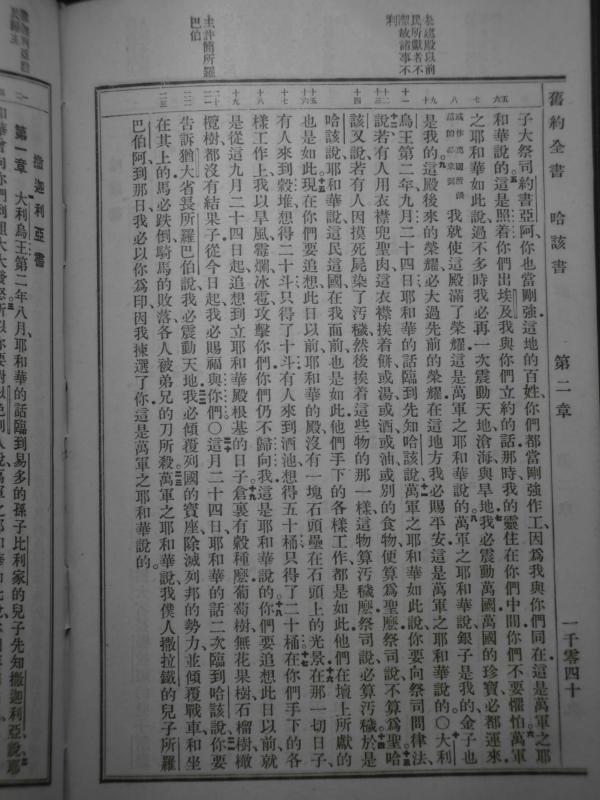 舊約全書　哈該書　第二章　一千零四十
未建殿以前
民所獻者不
潔故諸事不
利
主許簡所羅
巴伯
子大祭司約書亞阿、你也當剛強、這地的百姓、你們都當剛強作工、因爲我與你們同在、這是萬軍之耶
和華說的、這是照着你們出埃及我與你們立約的話、那時我的靈住在你們中間、你們不要懼怕、萬軍
之耶和華如此說、過不多時我必再一次震動天地、滄海、與旱地、我必震動萬國、萬國的珍寶必都運來
我就使這殿滿了榮耀、這是萬軍之耶和華說的、萬軍之耶和華說、銀子是我的、金子也
是我的、這殿後來的榮耀、必大過先前的榮耀、在這地方我必賜平安、這是萬軍之耶和華說的。〇大利
烏王第二年九月二十四日、耶和華的話臨到先知哈該說、萬軍之耶和華如此說、你要向祭司問律法、
說、若有人用衣襟兜聖肉、這衣襟挨着餅、或湯、或酒、或油、或別的食物、便算爲聖麽、祭司說、不算爲聖、哈
該又說、若有人因摸死屍染了汚穢、然後挨着這些物的那一樣、這物算汚穢麽、祭司說、必算汚穢、於是
哈該說、耶和華說、這民這國、在我面前也是如此、他們手下的各樣工作都是如此、他們在壇上所獻的
也是如此、現在你們要追想此日以前、耶和華的殿沒有一塊石頭壘在石頭上的光景、在那一切日子、
有人來到穀堆、想得二十斗、只得了十斗、有人來到酒池、想得五十桶、只得了二十桶、在你們手下的各
樣工作上、我以旱風、霉爛、冰雹攻擊你們、你們仍不歸向我、這是耶和華說的、你們要追想此日以前、就
是從這九月二十四日起、追想到立耶和華殿根基的日子、倉裏有穀種麽、葡萄樹、無花果樹、石榴樹、橄
欖樹、都沒有結果子、從今日起、我必賜福與你們。〇這月二十四日、耶和華的話二次臨到哈該說、你要
告訴猶大省長所羅巴伯說、我必震動天地、我必傾覆列國的寶座、除滅列邦的勢力、並傾覆戰車、和坐
在其上的、馬必跌倒、騎馬的敗落、各人被弟兄的刀所殺、萬軍之耶和華說、我僕人撒拉鐵的兒子所羅
巴伯阿、到那日、我必以你爲印、因我揀選了你、這是萬軍之耶和華說的。
撒迦利亞書
第一章　大利烏王第二年八月、耶和華的話臨到易多的孫子、比利家的兒子先知撒迦利亞、說、耶